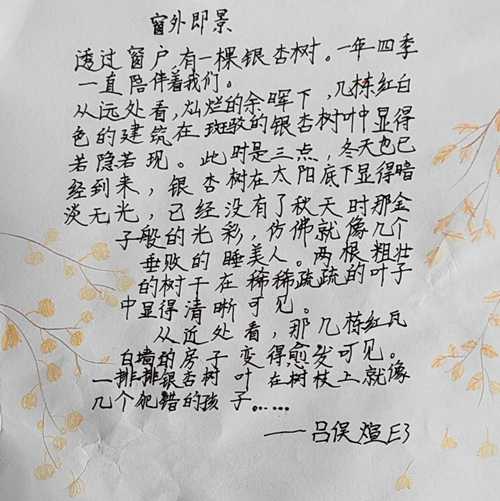 窗外即景
透过窗户,有一棵银杏树。一年四季
一直陪伴着我们。
从远处看,灿烂的余晖下,几栋红白
色的建筑在斑驳的银杏树叶中显得
若隐若现。此时是三点,冬天也已
经到来,银杏树在太阳底下显得暗
淡无光,已经没有了秋天时那金
子般的光彩,仿佛就像几个
垂败的睡美人。两根粗壮
的树干在稀稀疏疏的叶子
中显得清晰可见。
从近处看,那几栋红瓦
白墙的房子变得愈发可见。
一排排银杏树叶在树杈上就像
几个犯错的孩子……
——吕俣煊E3